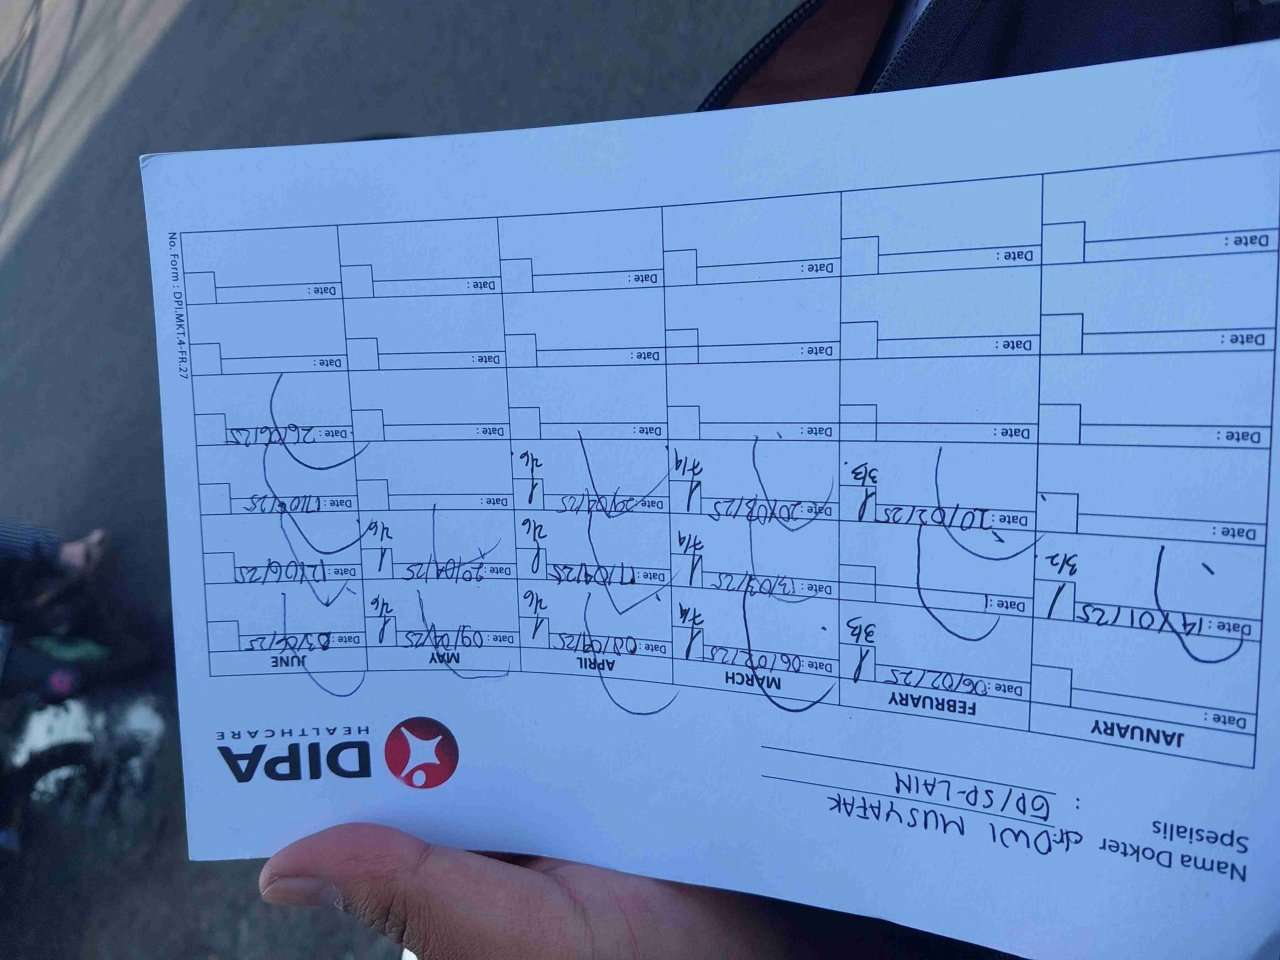 Nama Dokter dr.DWI MUSYAFAK
Spesialis : GP/SP-LAIN
DIPA
HEALTHCARE
JANUARY FEBRUARY MARCH APRIL MAY JUNE
Date : Date : 06/02/25 3/3 Date : 06/03/25 7/4 Date : 08/04/25 2/6 Date : 2/6 Date : 03/06/25
Date : 14/01/25 3/2 Date : Date : 13/03/25 7/4 Date : 17/04/25 2/6 Date : 2/6 Date : 12/06/25
Date : Date : 20/02/25 3/3 Date : 20/03/25 7/4 Date : 29/04/25 2/6 Date : Date : 17/06/25
Date : Date : Date : Date : Date : Date : 26/06/25
Date : Date : Date : Date : Date : Date :
Date : Date : Date : Date : Date : Date :
No. Form : DPI.MKT.4-FR.27